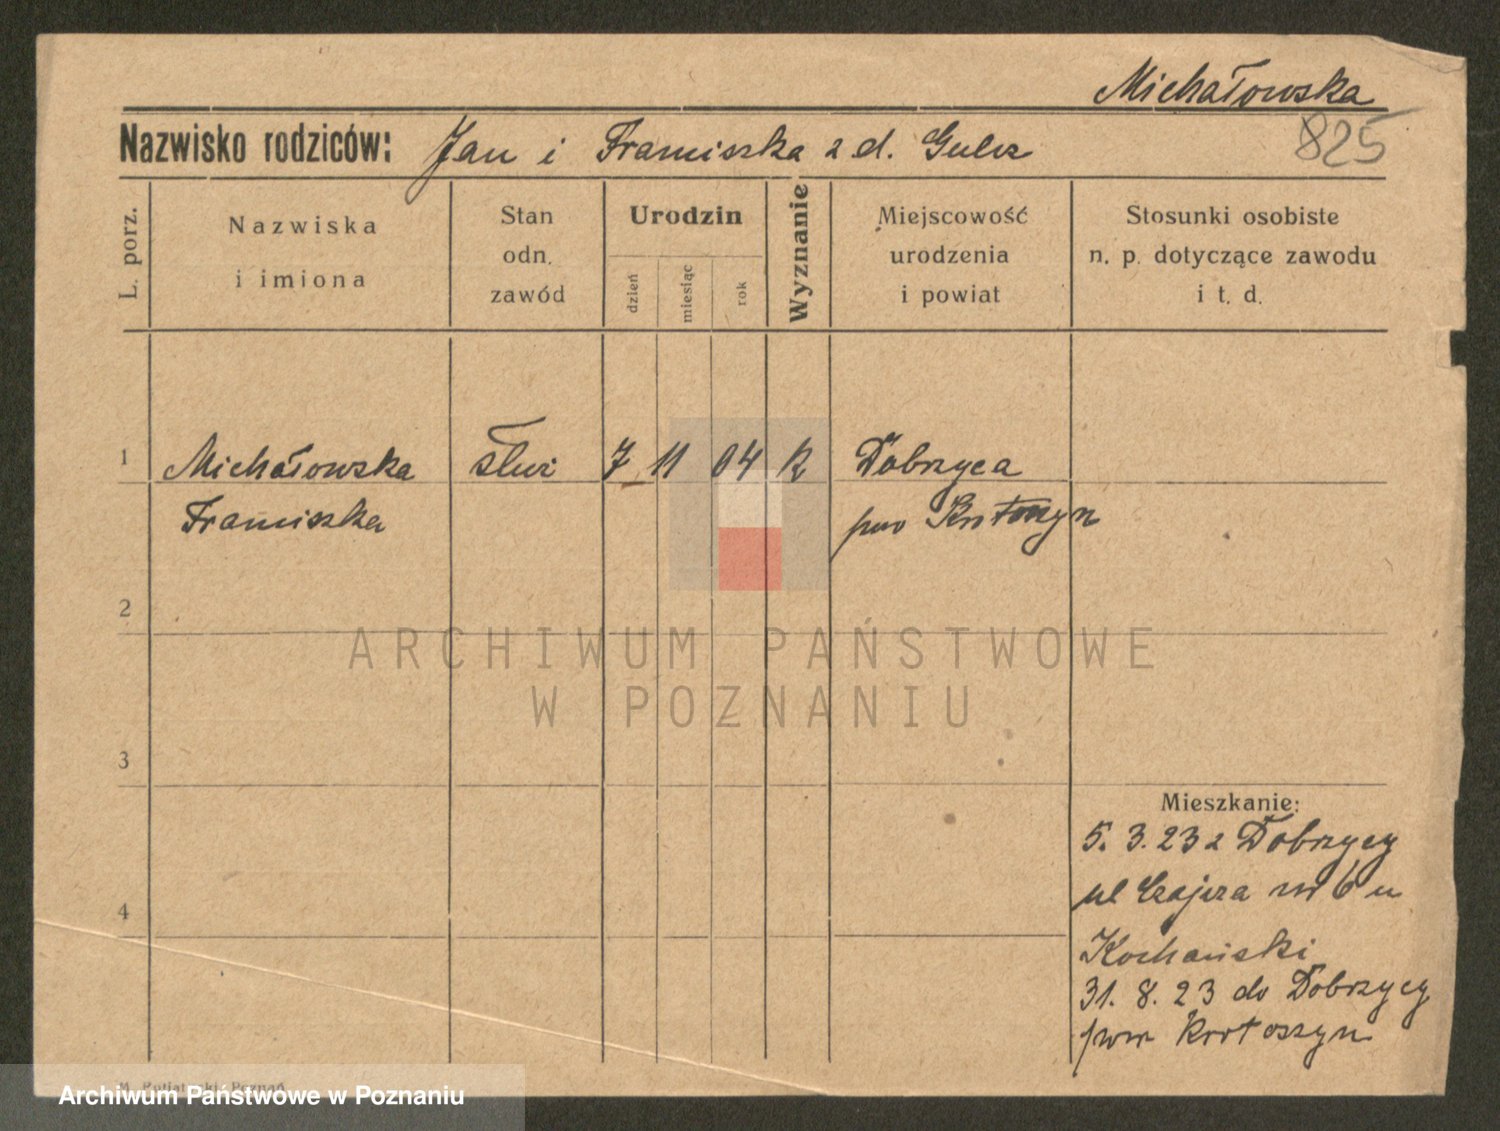 Michałowska
Nazwisko rodziców: Jan i Franciszka z d. Gulcz
825
L. porz.
Nazwiska
i imiona
Stan
odn.
zawód
Urodzin
dzień
miesiąc
rok
Wyznanie
Miejscowość
urodzenia
i powiat
Stosunki osobiste
n. p. dotyczące zawodu
i t. d.
1 Michałowska służ 7 11 04 k Dobrzyca
Franciszka pow Krotoszyn
2
ARCHIWUM PAŃSTWOWE
W POZNANIU
3
Mieszkanie:
5. 3. 23 z Dobrzycy
ul Czajcza nr 6 u
4
Kochański
31. 8. 23 do Dobrzycy
pow Krotoszyn
Poznań
Archiwum Państwowe w Poznaniu